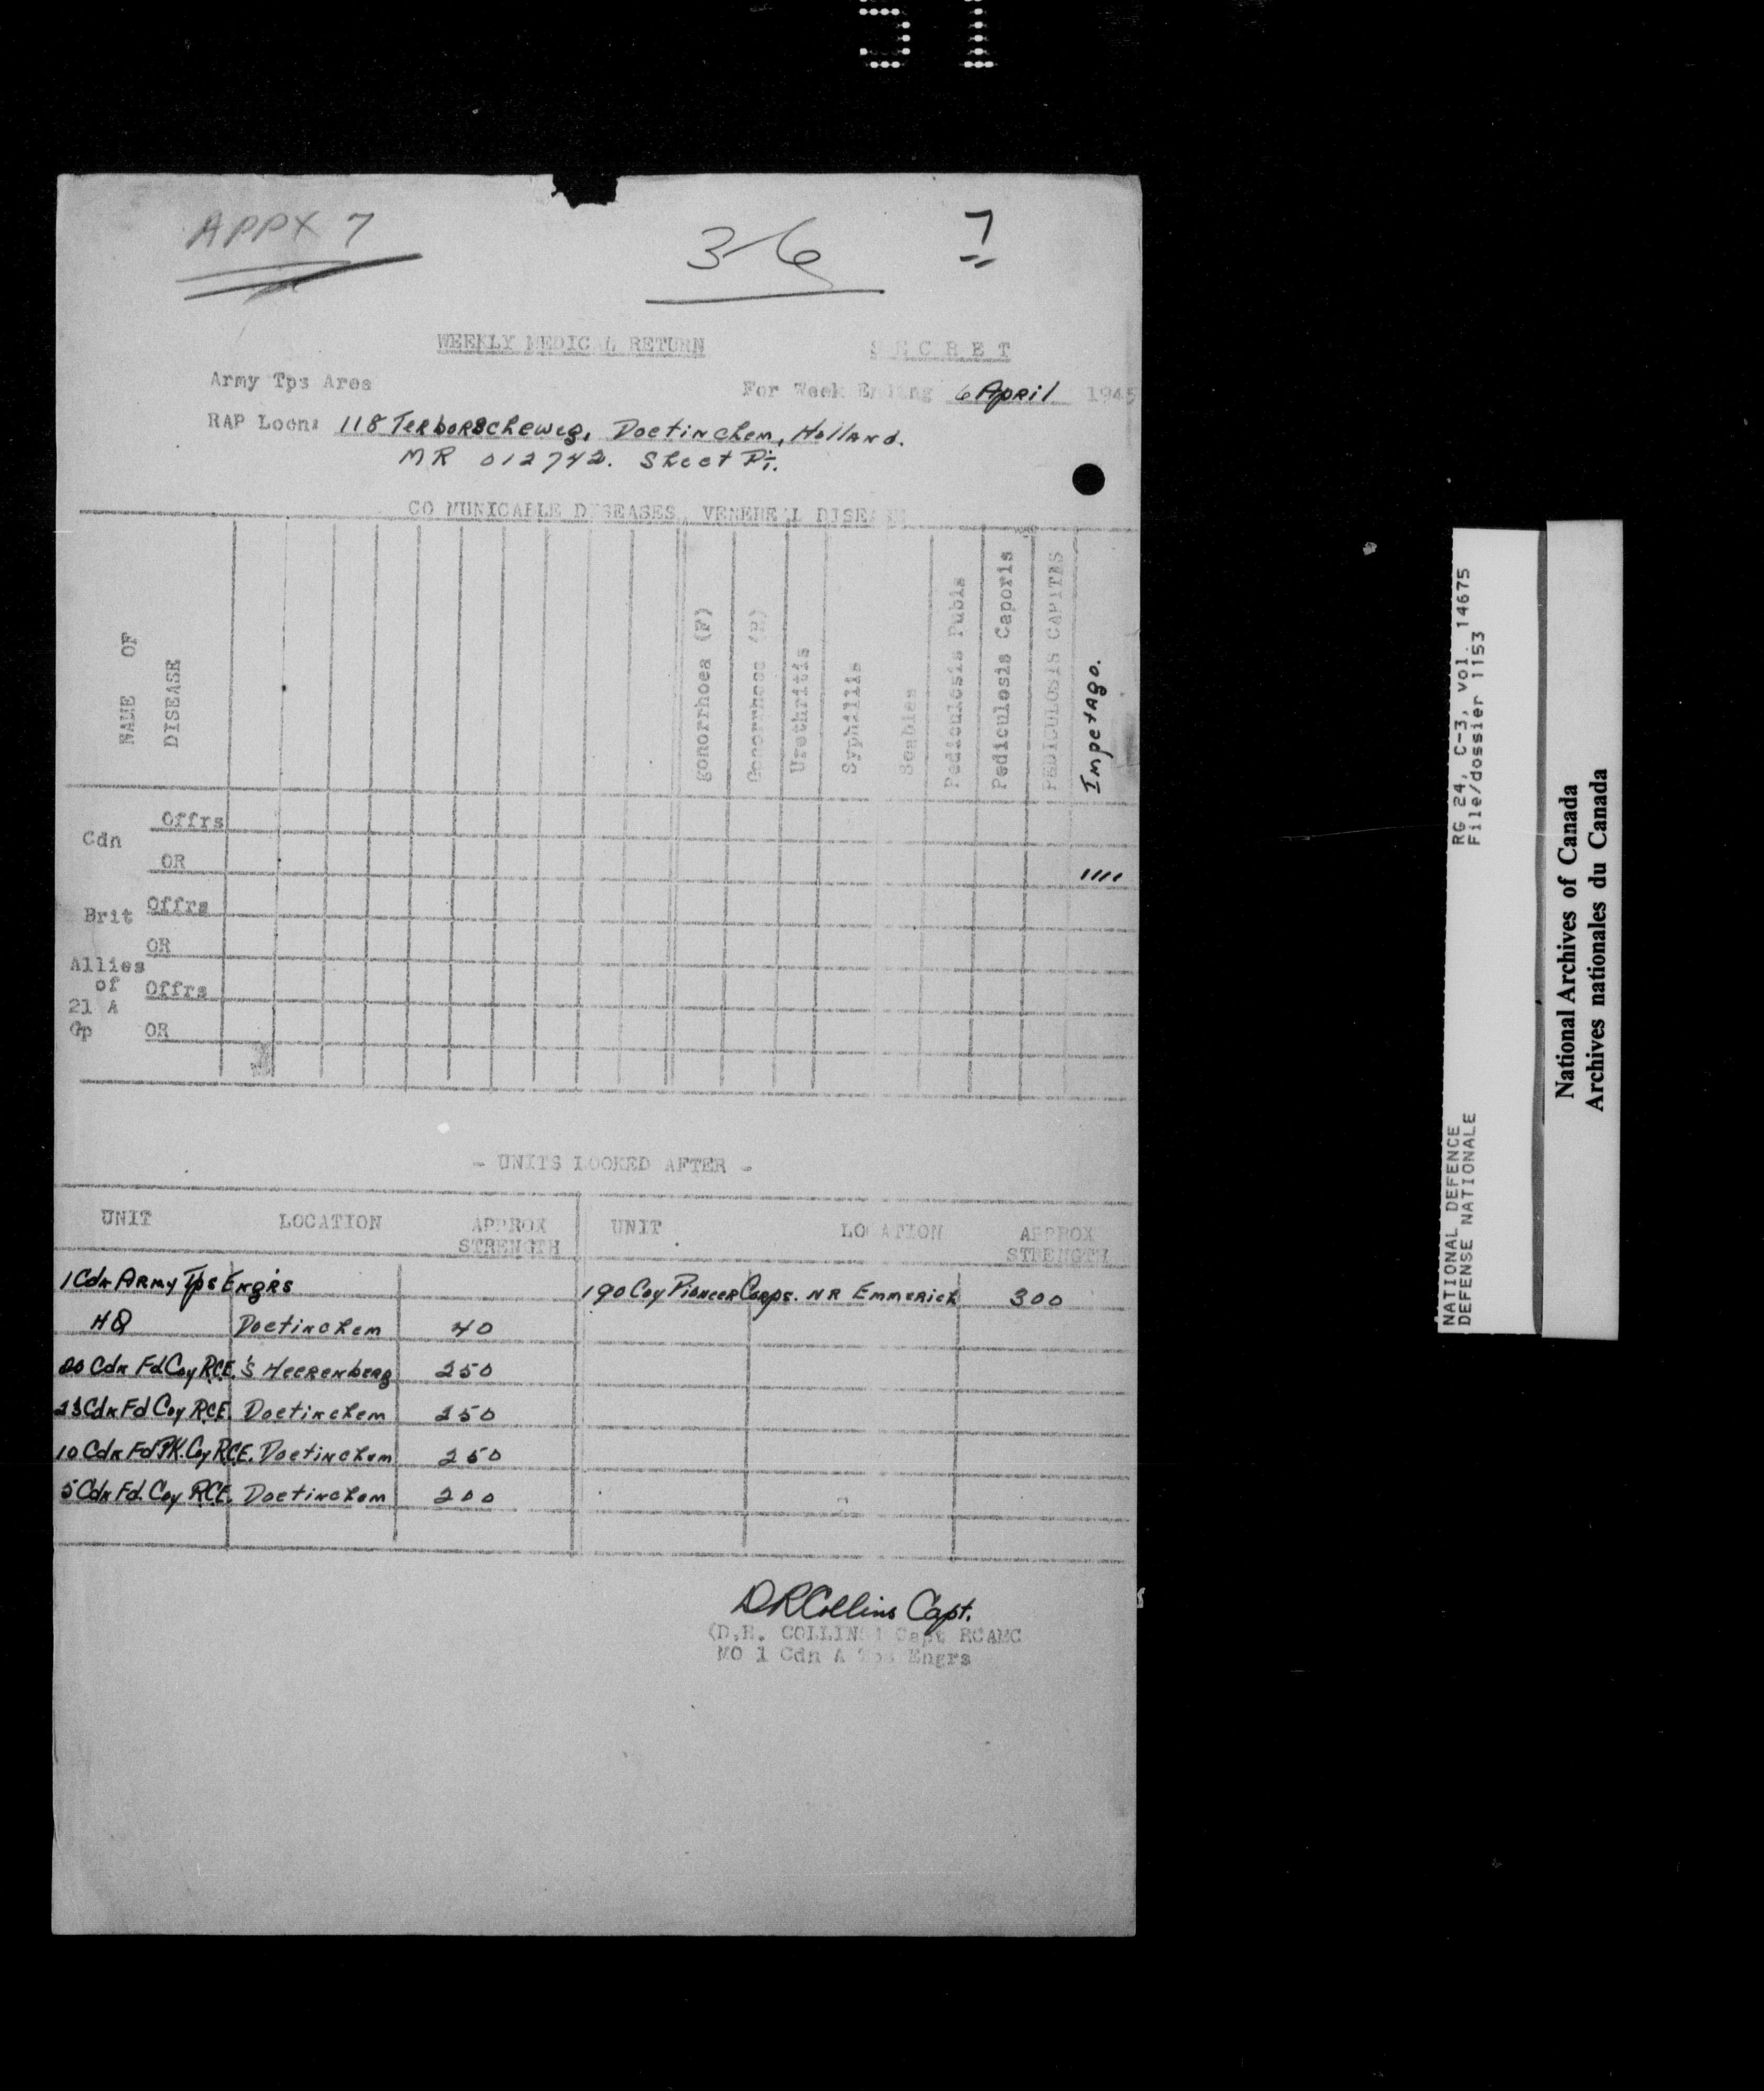 51
APPX 7
36
7
WEEKLY MEDICAL RETURN
SECRET
Army Tps Area
For Week Ending 6 April 1945
RAP Locn: 118 Terborscheweg, Doetinchem, Holland.
MR 012742. Sheet P1.
COMMUNICABLE DISEASES, VENEREAL DISEASE
NAME OF DISEASE
gonorrhoea (F)
Gonorrhoea (R)
Urethritis
Syphillis
Scabies
Pediculosis Pubis
Pediculosis Caporis
PEDICULOSIS CAPITAS
Impetago.
Cdn Offrs
OR ////
Brit Offrs
OR
Allies of 21 A Gp Offrs
OR
- UNITS LOOKED AFTER -
UNIT LOCATION APPROX STRENGTH UNIT LOCATION APPROX STRENGTH
1 Cdn Army Tps Engrs
190 Coy Pioneer Corps. NR Emmerich 300
HQ Doetinchem 40
20 Cdn Fd Coy RCE. 's Heerenberg 250
23 Cdn Fd Coy RCE. Doetinchem 250
10 Cdn Fd PK. Coy RCE. Doetinchem 250
5 Cdn Fd. Coy RCE. Doetinchem 200
DRCollins Capt.
(D.R. COLLINS) Capt RCAMC
MO 1 Cdn A Tps Engrs
RG 24, C-3, vol. 14675
File/dossier 1153
NATIONAL DEFENCE
DEFENSE NATIONALE
National Archives of Canada
Archives nationales du Canada